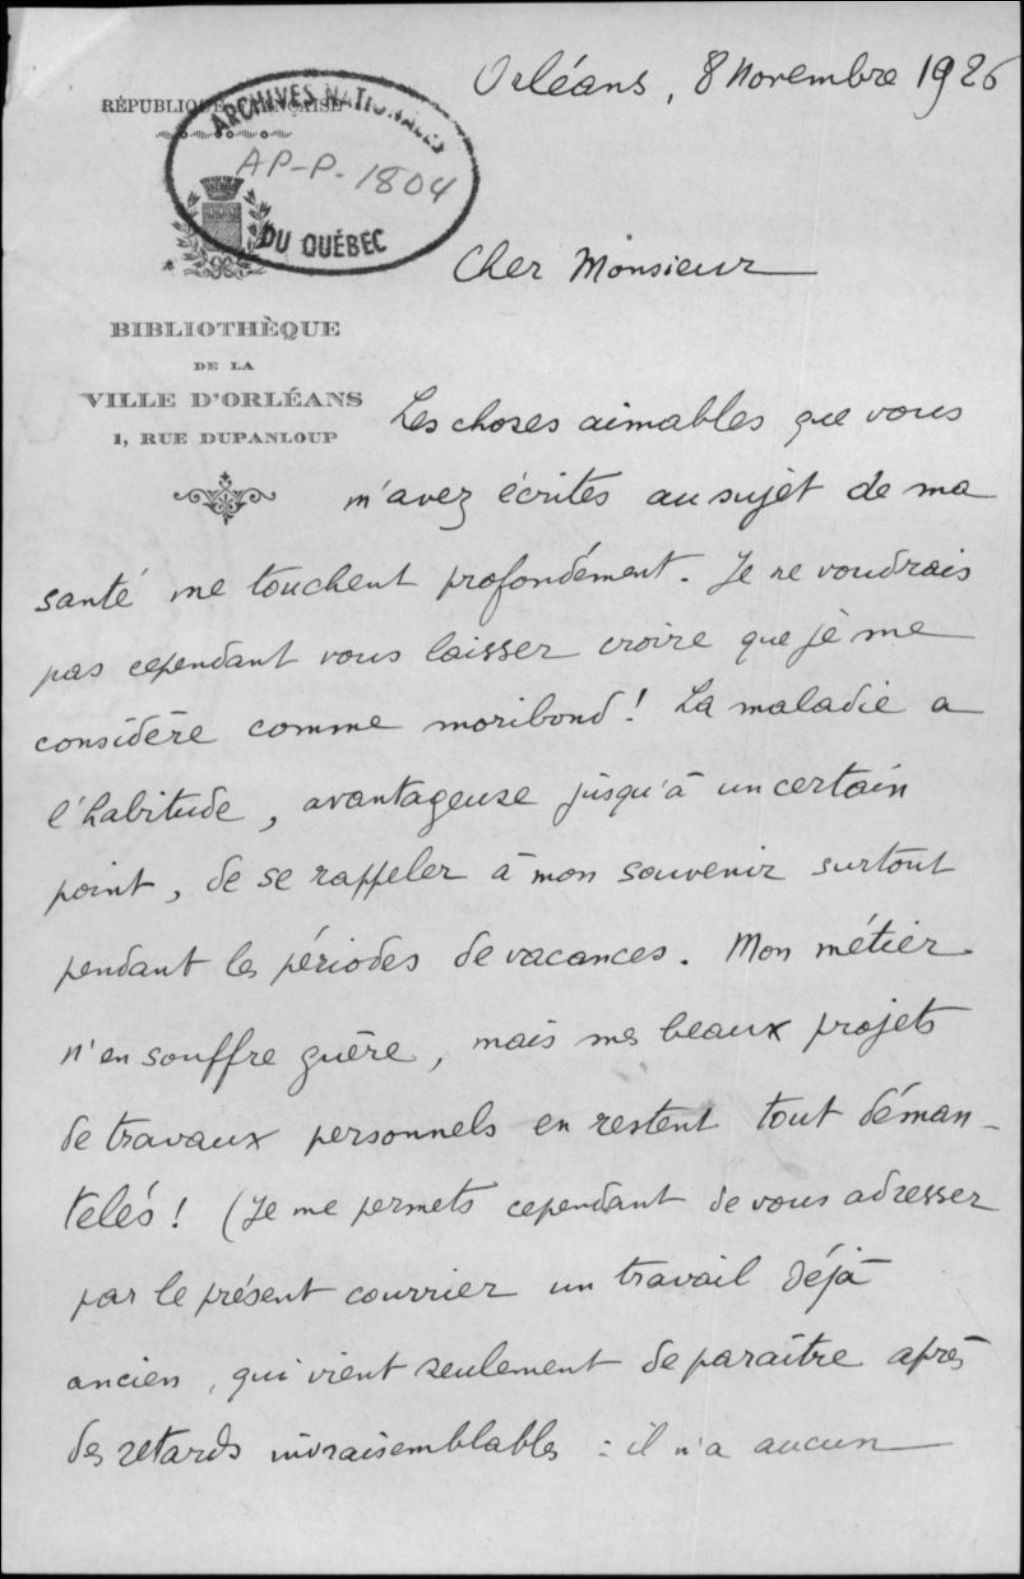 Orléans, 8 Novembre 1926
RÉPUBLIQUE FRANÇAISE
ARCHIVES NATIONALES
AP-P-1804
DU QUÉBEC
Cher Monsieur
BIBLIOTHÈQUE
DE LA
VILLE D'ORLÉANS
1, RUE DUPANLOUP
Les choses aimables que vous
m'avez écrites au sujet de ma
santé me touchent profondément. Je ne voudrais
pas cependant vous laisser croire que je me
considère comme moribond! La maladie a
l'habitude, avantageuse jusqu'à un certain
point, de se rappeler à mon souvenir surtout
pendant les périodes de vacances. Mon métier
n'en souffre guère, mais mes beaux projets
de travaux personnels en restent tout déman-
telés! (Je me permets cependant de vous adresser
par le présent courrier un travail déjà
ancien, qui vient seulement de paraître après
des retards invraisemblables : il n'a aucun